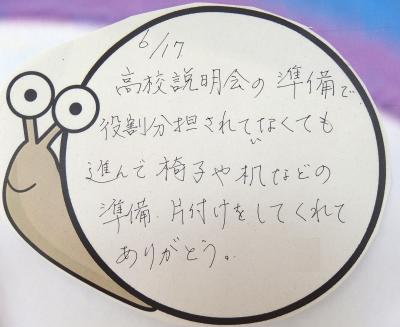 6/17
高校説明会の準備で
役割分担されていなくても
進んで椅子や机などの
準備、片付けをしてくれて
ありがとう。